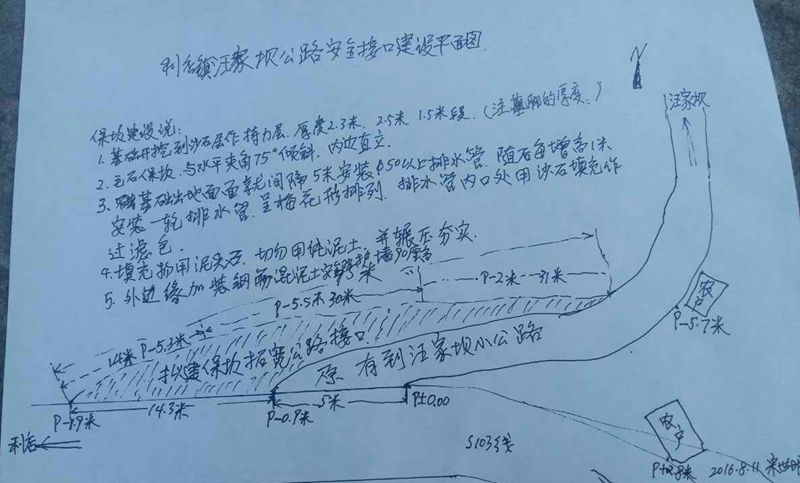 利店镇汪家坝公路安全接口建设平面图
N
汪家坝
保坎建设说:
1. 基础开挖到沙石层作持力层. 厚度2.3米. 2.5米 1.5米段. (注基脚的厚度.)
2. 毛石保坎. 与水平夹角75°倾斜. 内边直立.
3. 基础出地面面就间隔5米安装φ50以上排水管. 随后每增高1米
安装一轮排水管. 呈梅花形排列. 排水管内口处用沙石填充作
过滤包.
4. 填充拆用泥夹石. 切勿用纯泥土. 并辗压夯实.
5. 外边缘加装钢筋混泥土安全护墙90厘高
米
P-5.5米 30米
P-2米 31米
14米 P-5.3米
拟建保坎拓宽公路接口
原有到汪家坝小公路
农户
P-5.7米
14.3米
5米
P-1.9米
P-0.9米
P±0.00
利店
S103线
农户
2016.8.11